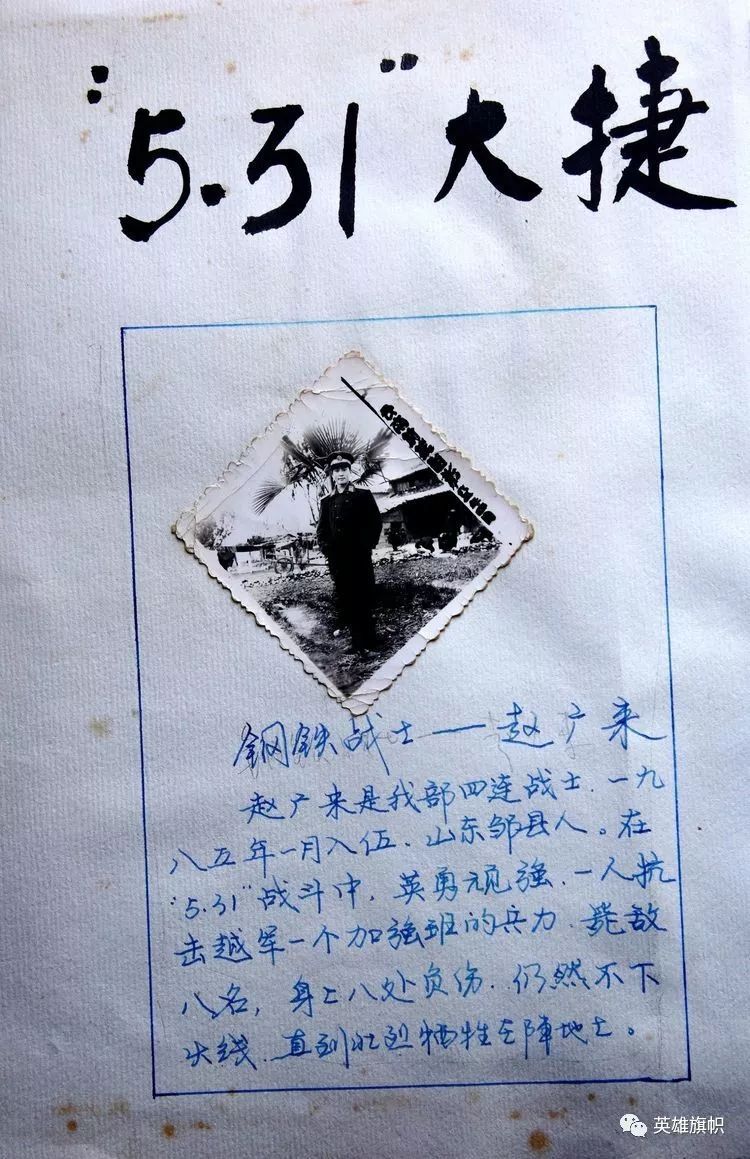 “5.31”大捷
钢铁战士——赵广来
赵广来是我部四连战士.一九
八五年一月入伍.山东邹县人。在
“5.31”战斗中,英勇顽强.一人抗
击越军一个加强班的兵力.毙敌
八名,身上八处负伤.仍然不下
火线.直到壮烈牺牲在阵地上。
英雄旗帜